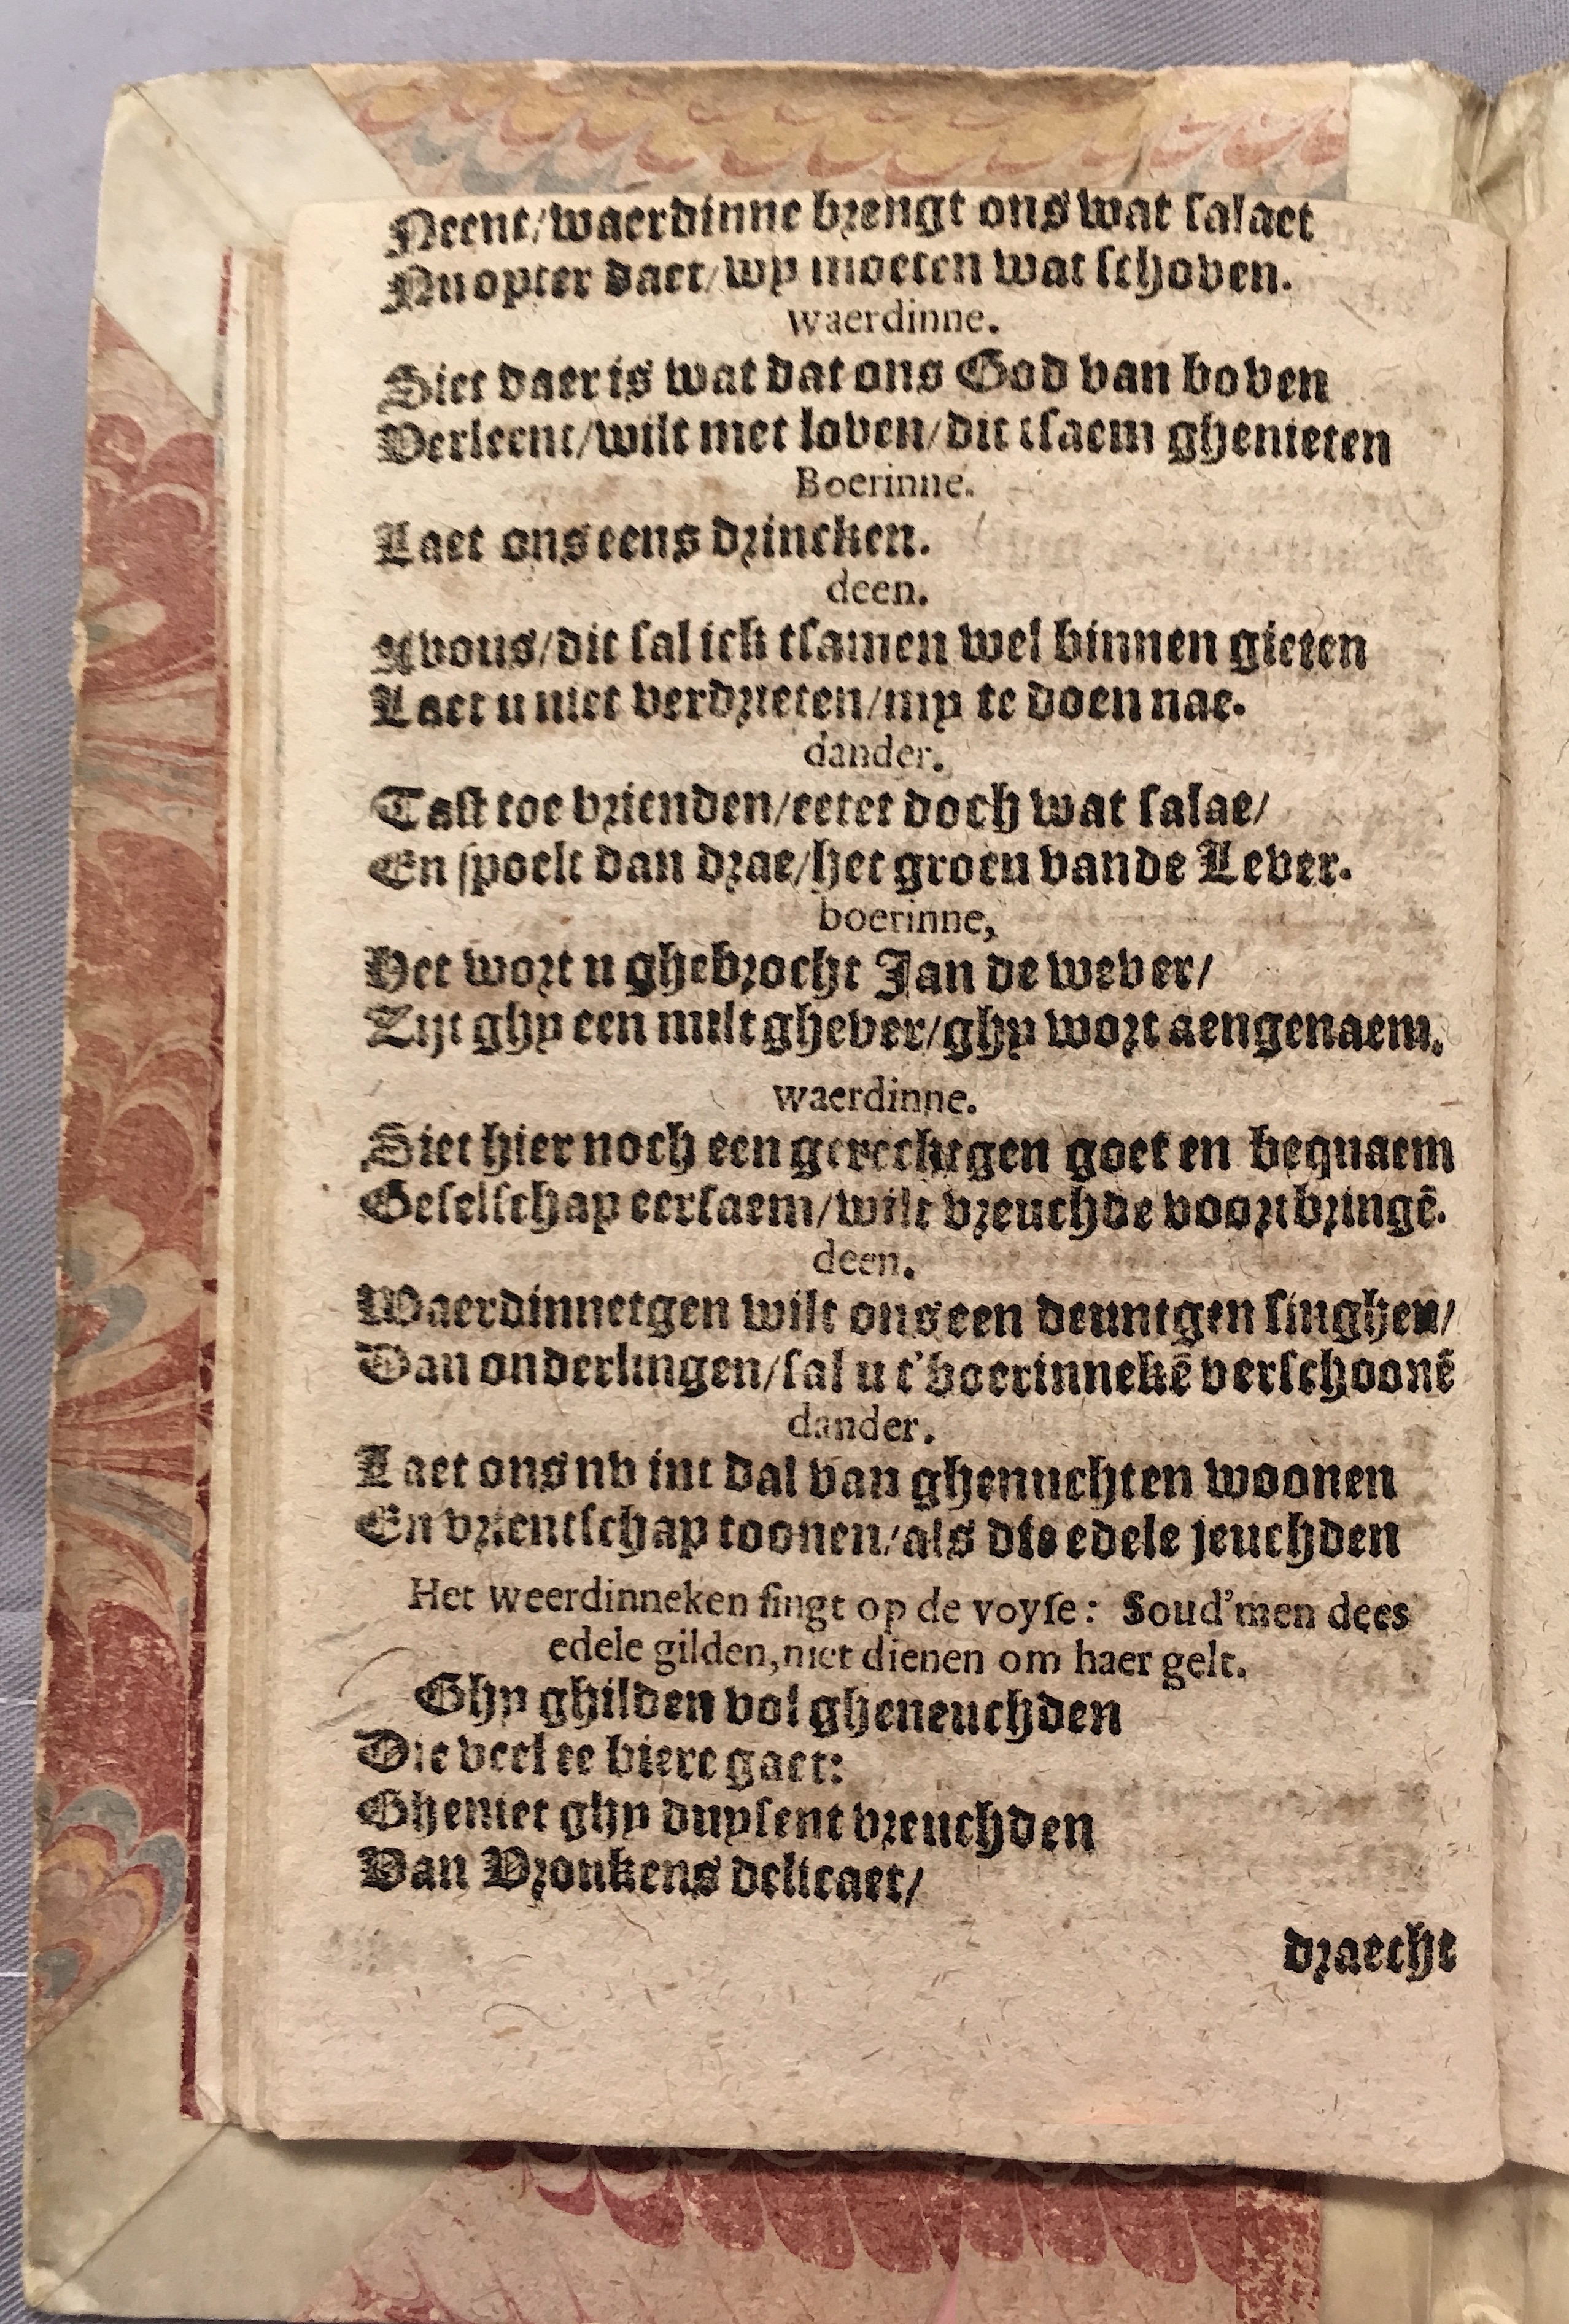 Neent/waerdinne brengt ons wat salaet
Nu opter daet/wy moeten wat schoven.
waerdinne.
Siet daer is wat dat ons God van boven
Verleent/wilt met loven/dit tsaem ghenieten
Boerinne.
Laet ons eens drincken.
deen.
Avous/dit sal ick tsamen wel binnen gieten
Laet u niet verdrieten/my te doen nae.
dander.
Tast toe vrienden/eetet doch wat salae/
En spoelt dan drae/het groen vande Lever.
boerinne,
Het wort u ghebrocht Jan de wever/
Zijt ghy een milt ghever/ghy wort aengenaem.
waerdinne.
Siet hier noch een gerechtgen goet en bequaem
Geselschap eersaem/wilt vreuchde voortbringē.
deen.
Waerdinnetgen wilt ons een deuntgen singhen/
Dan onderlingen/sal u t'boerinnekē verschoonē
dander.
Laet ons nv int dal van ghenuchten woonen
En vrientschap toonen/als die edele jeuchden
Het weerdinneken singt op de voyse: Soud'men dees
edele gilden,niet dienen om haer gelt.
Ghy ghilden vol gheneuchden
Die veel te biere gaet:
Gheniet ghy duysent vreuchden
Van Vroukens delicaet/
draecht